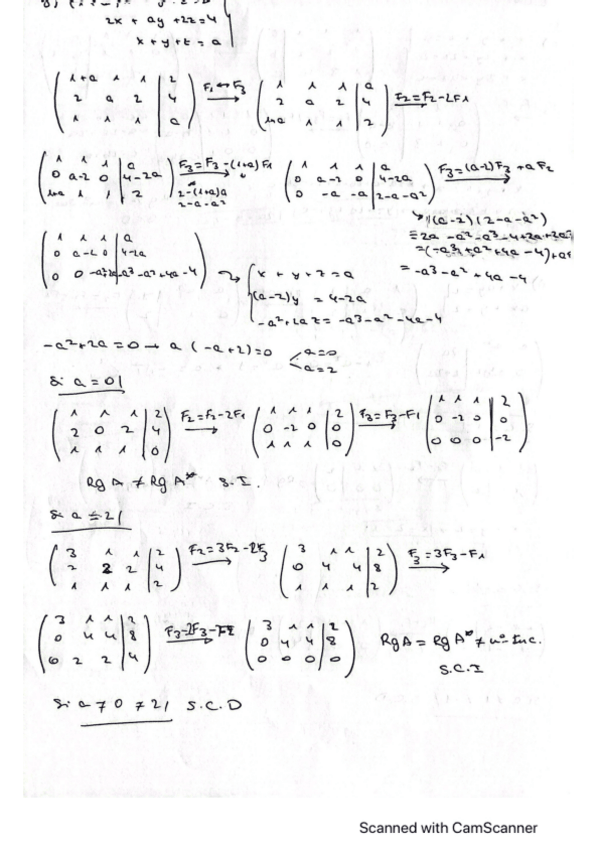 2x + ay + 2z = 4
x + y + z = a
( 1+a 1 1 | 2 ; 2 a 2 | 4 ; 1 1 1 | a ) F1 ↔ F3 → ( 1 1 1 | a ; 2 a 2 | 4 ; 1+a 1 1 | 2 ) F2 = F2 - 2F1 →
( 1 1 1 | a ; 0 a-2 0 | 4-2a ; 1+a 1 1 | 2 ) F3 = F3 - (1+a) F1 → ( 1 1 1 | a ; 0 a-2 0 | 4-2a ; 0 -a -a | 2-a-a² ) F3 = (a-2) F3 + a F2 →
2-(1+a)a
2-a-a²
(a-2)(2-a-a²)
= -a³ - a² + 4a - 4
( 1 1 1 | a ; 0 a-2 0 | 4-2a ; 0 0 -a²+2a | -a³-a²+4a-4 ) → { x + y + z = a
(a-2)y = 4-2a
-a²+2a z = -a³-a²-4a-4
-a²+2a = 0 → a (-a+2) = 0 < a=0
a=2
Si a = 0|
( 1 1 1 | 2 ; 2 0 2 | 4 ; 1 1 1 | 0 ) F2 = F2 - 2F1 → ( 1 1 1 | 2 ; 0 -2 0 | 0 ; 1 1 1 | 0 ) F3 = F3 - F1 → ( 1 1 1 | 2 ; 0 -2 0 | 0 ; 0 0 0 | -2 )
Rg A ≠ Rg A* S.I.
Si a = 2|
( 3 1 1 | 2 ; 2 2 2 | 4 ; 1 1 1 | 2 ) F2 = 3F2 - 2F → ( 3 1 1 | 2 ; 0 4 4 | 8 ; 1 1 1 | 2 ) F3 = 3F3 - F1 →
( 3 1 1 | 2 ; 0 4 4 | 8 ; 0 2 2 | 4 ) F3 = 2F3 - F2 → ( 3 1 1 | 2 ; 0 4 4 | 8 ; 0 0 0 | 0 ) Rg A = Rg A* ≠ nº Inc.
S.C.I
Si a ≠ 0 ≠ 2| S.C.D
Scanned with CamScanner